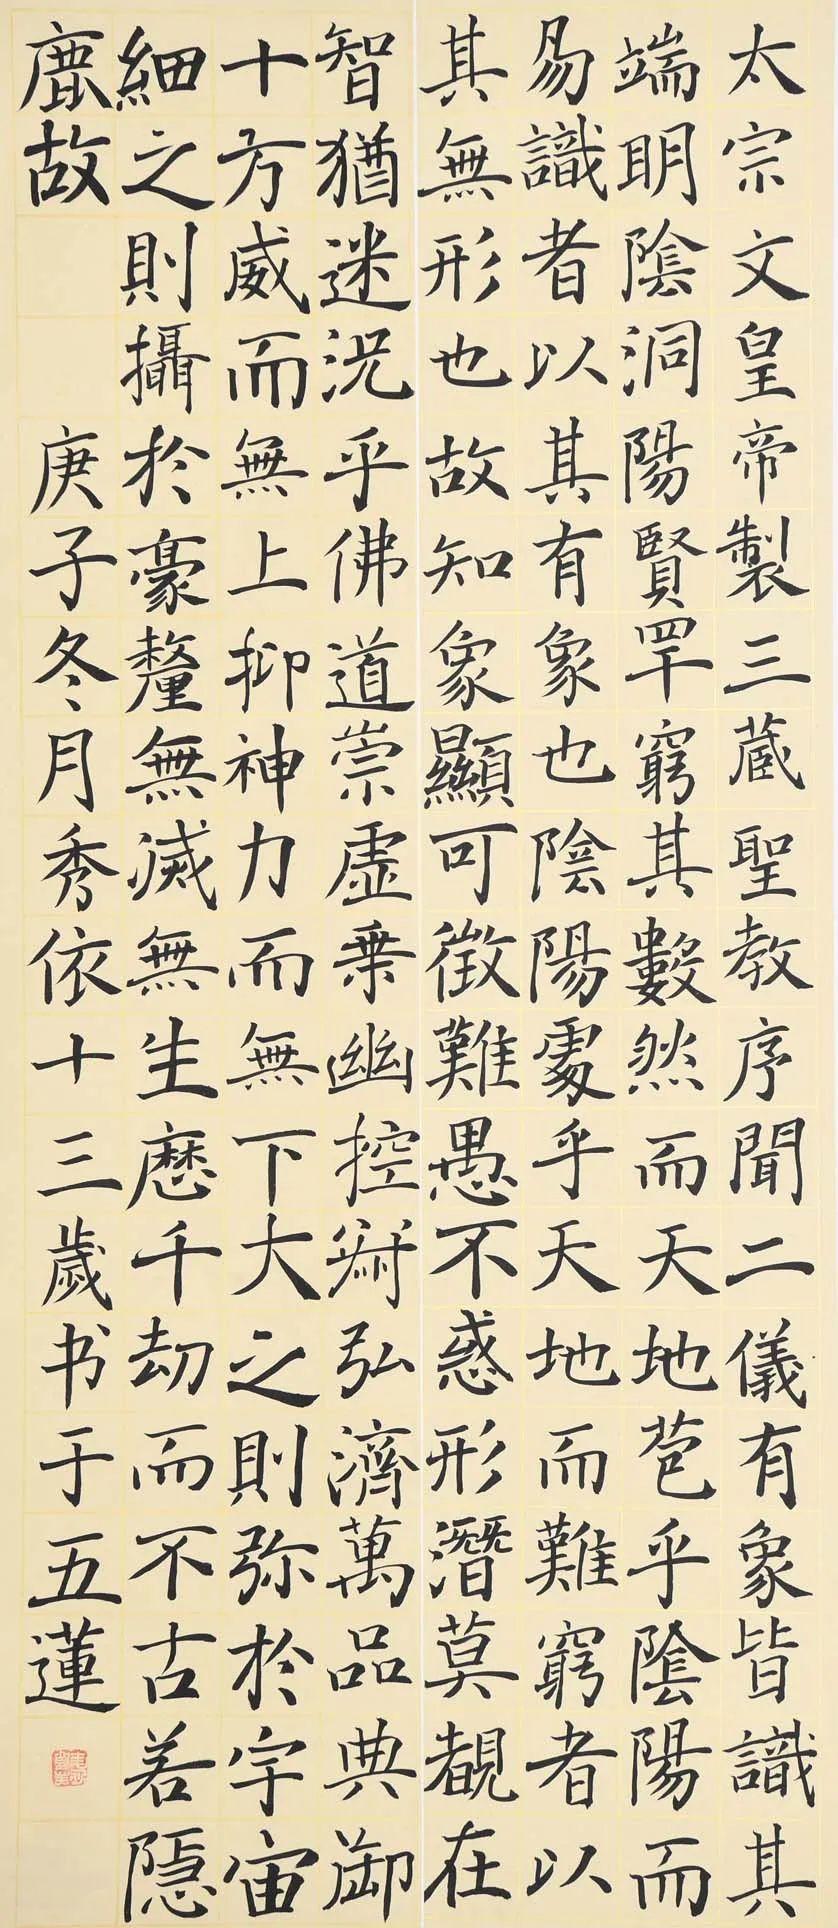 太宗文皇帝製三蔵聖教序聞二儀有象皆識其
端明陰洞陽賢罕窮其數然而天地苞乎陰陽而
易識者以其有象也陰陽處乎天地而難窮者以
其無形也故知象顯可徵難愚不惑形潛莫覩在
智猶迷況乎佛道崇虛乗幽控寂弘濟萬品典御
十方威而無上抑神力而無下大之則弥於宇宙
細之則攝於豪釐無滅無生歷千劫而不古若隱
鹿故
庚子冬月秀依十三歲书于五蓮